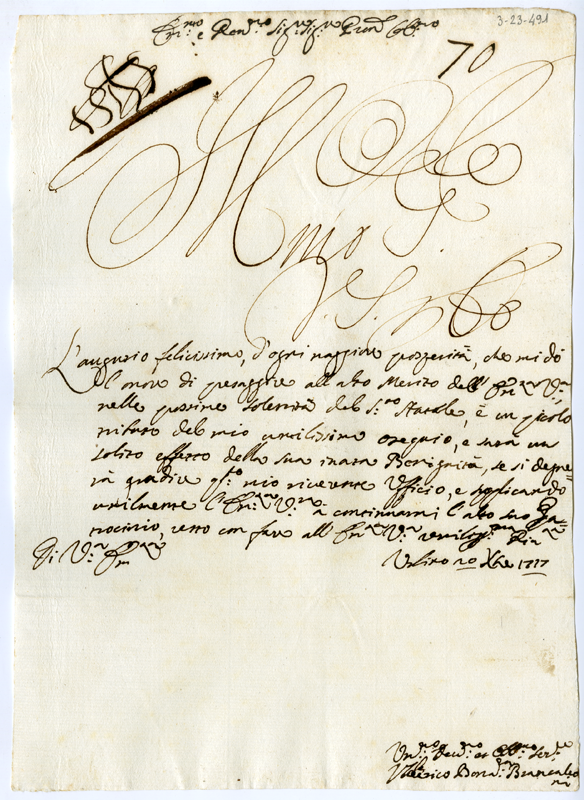 3-23-491
Em:mo e Rev:mo Sig:re Sig:re Pron Col:mo
70
L'augurio felicissimo, d'ogni maggiore prosperità, che mi dò
l'onore di porgere all'alto Merito dell' Em:za V:ra
nelle prossime solennità del S:mo Natale, è un picolo
tributo del mio umilissimo ossequio, e sarà un
solito effetto della sua innata Benignità, se si degne=
rà gradire q:sto mio riverente Ufficio, e suplicando
umilmente l'Em:za V:ra à continuarmi l'alto suo Pa=
trocinio, resto con fare all' Em:za V:ra umiliss:ma Riu:za
Di V:ra Em:za
Urbino 20 Xbre 1717
Um:mo Dev:mo et Obl:mo Ser:re
Brancaleo
ni